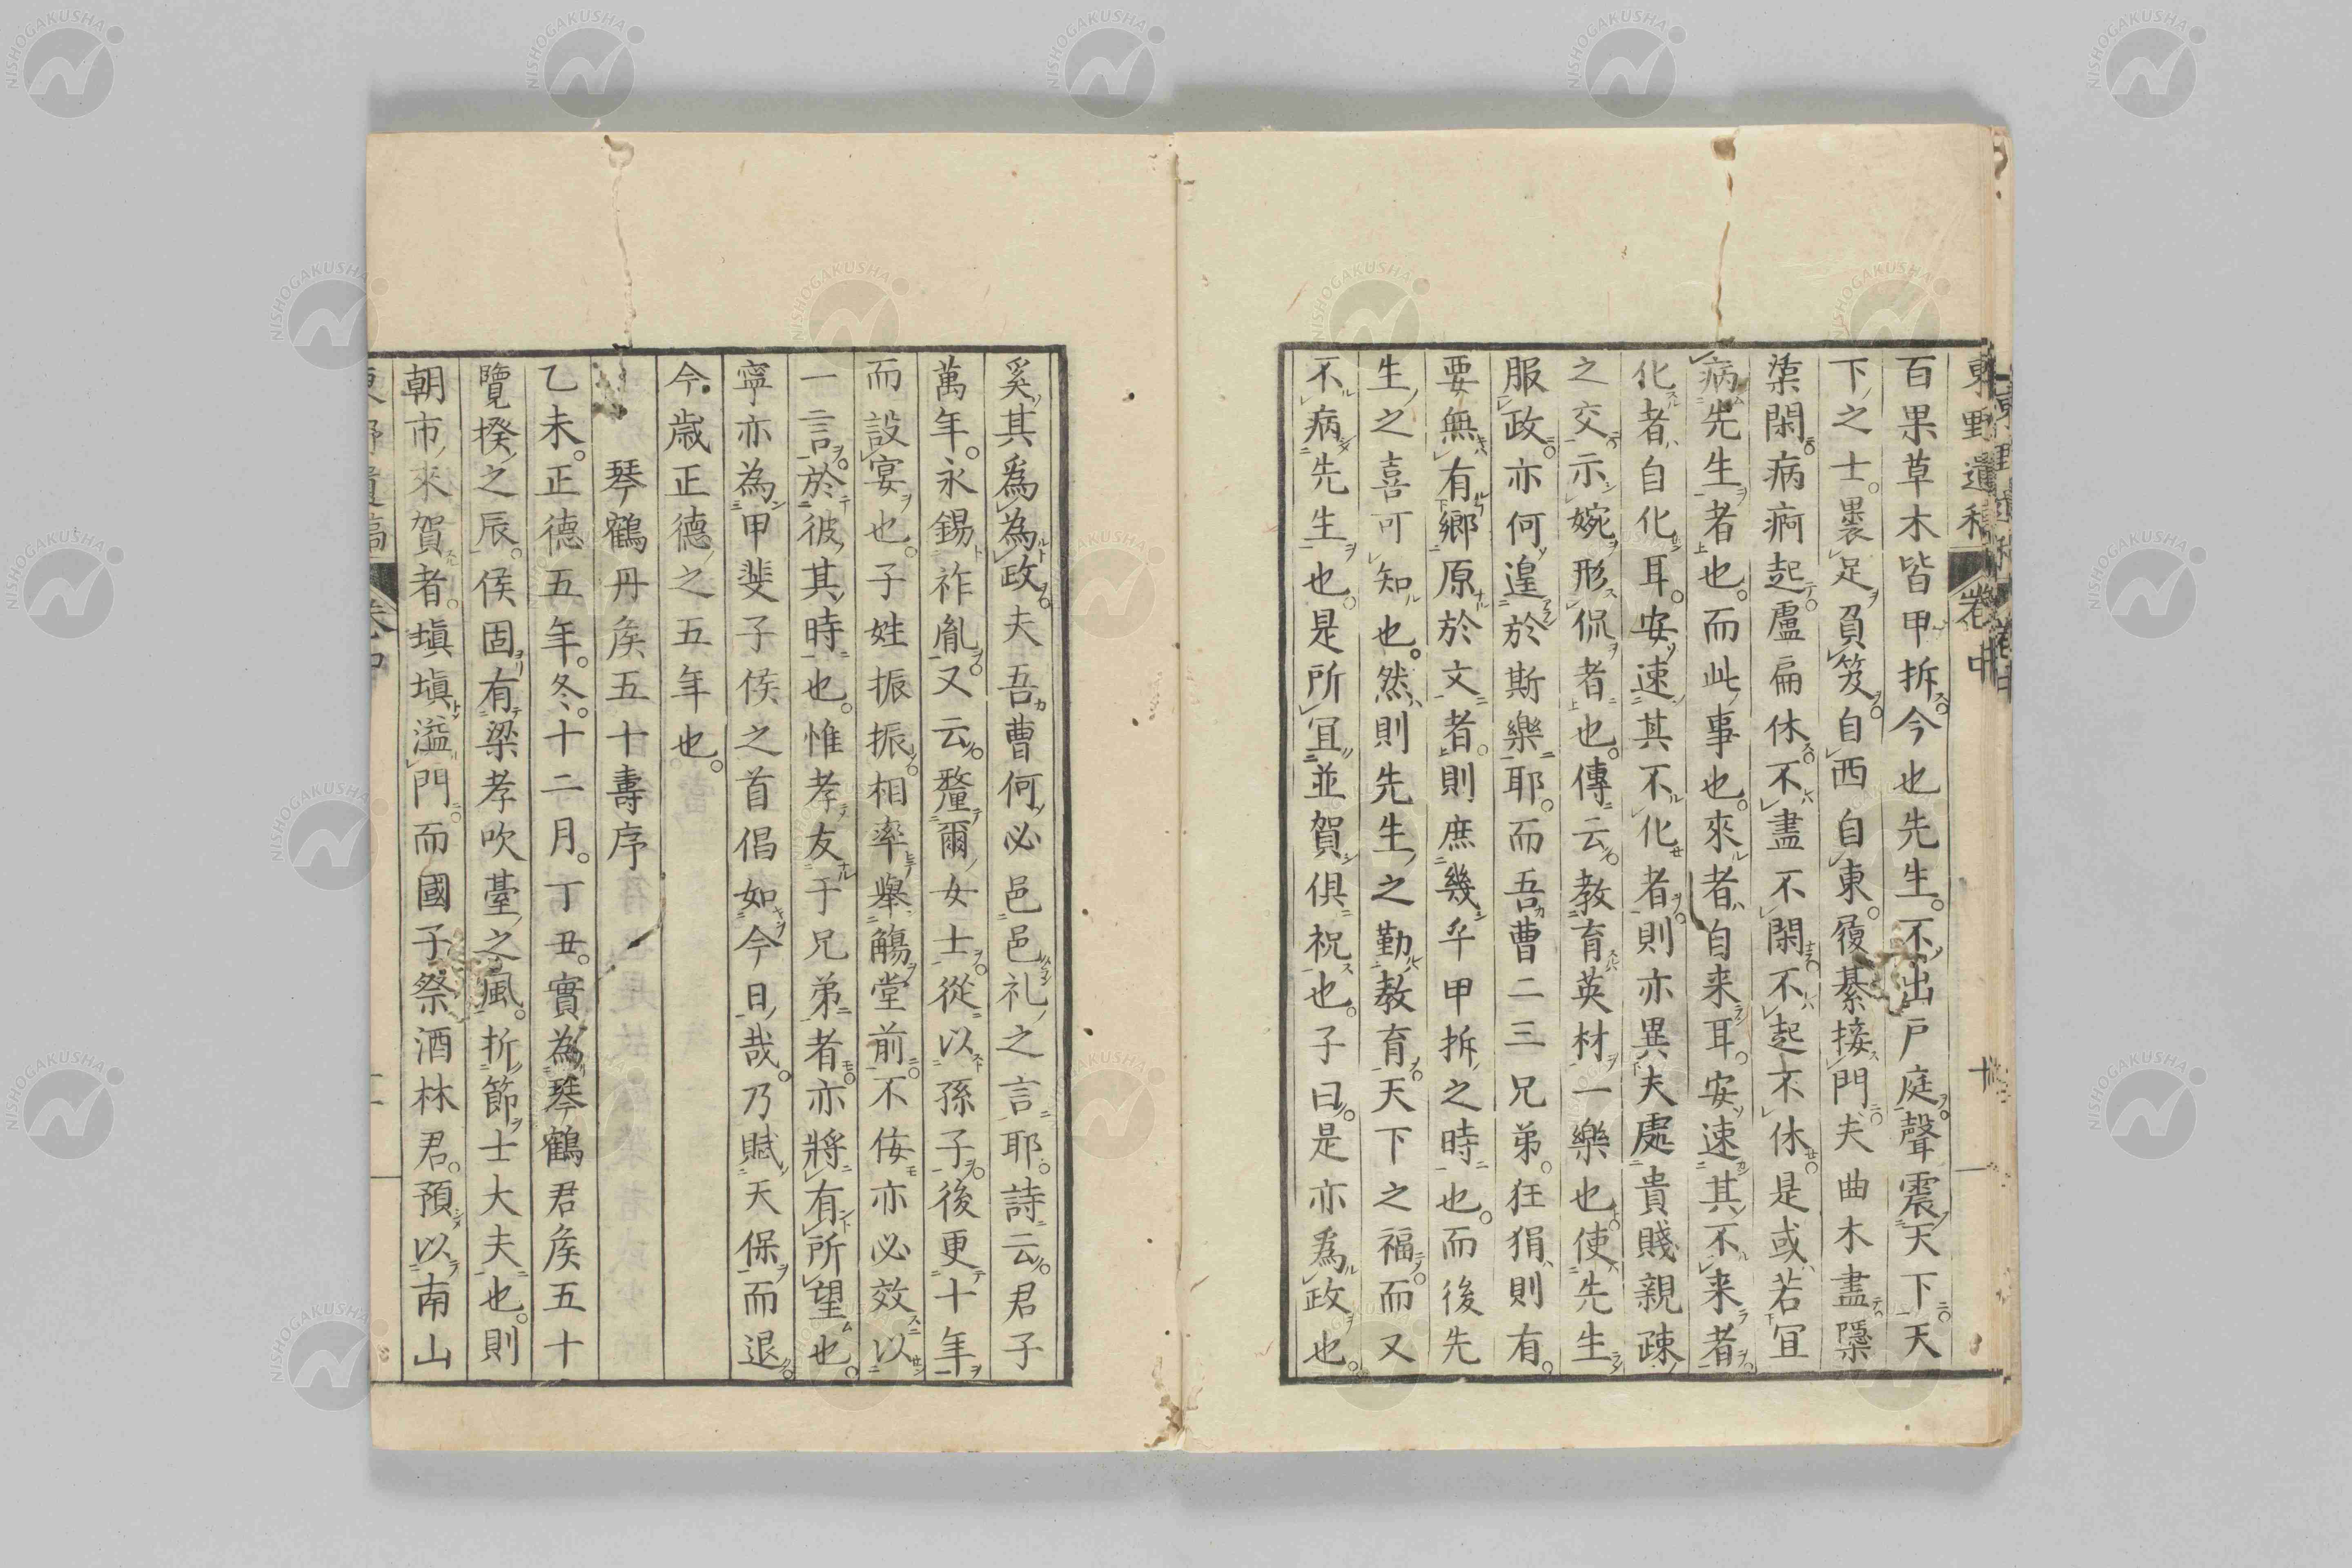 東野遺稿 卷中
百果草木皆甲拆今也先生不出戶庭聲震天下天
下之士褁足負笈自西自東履綦接門夫曲木盡隱
栗閑病痾起廬扁休不盡不閑不起不休是或若宜
病先生者也而此事也來者自来耳安速其不来者
化者自化耳安速其不化者則亦異夫處貴賤親疎
之交示婉形侃者也傳云教育英材一樂也使先生
服政亦何遑於斯樂耶而吾曹二三兄弟狂狷則有
要無有鄉原於文者則庶幾乎甲拆之時也而後先
生之喜可知也然則先生之勤教育天下之福而又
不病先生也是所宜並賀俱祝也子曰是亦為政也
奚其為為政夫吾曹何必邑邑礼之言耶詩云君子
萬年永錫祚胤又云釐爾女士從以孫子後更十年
而設宴也子姓振振相率舉觴堂前不佞亦必效以
一言於彼其時也惟孝友于兄弟者亦將有所望也
寧亦為甲斐子侯之首倡如今日哉乃賦天保而退
今歲正德之五年也
琴鶴丹矦五十壽序
乙未正德五年冬十二月丁丑實為琴鶴君矦五十
覽揆之辰侯固有梁孝吹臺之風折節士大夫也則
朝市來賀者塡塡溢門而國子祭酒林君預以南山
東野遺稿 卷中
NISHOGAKUSHA